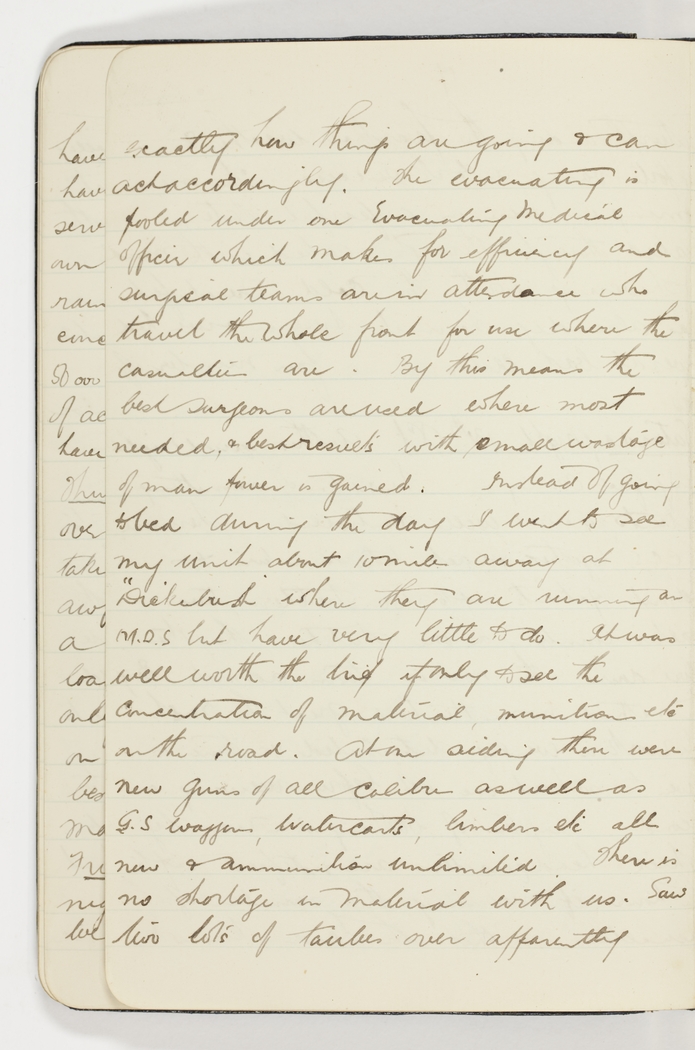 exactly how things are going & can
act accordingly. The evacuating is
pooled under one Evacuating Medical
Officer which makes for efficiency and
surgical teams are in attendance who
travel the whole front for use where the
casualties are. By this means the
best surgeons are used where most
needed, & best results with small wastage
of man power is gained. Instead of going
to bed during the day I went to see
my unit about 10 miles away at
"Dickebush" where they are running an
M.D.S but have very little to do. It was
well worth the trip if only to see the
concentration of material, munitions etc
on the road. At one siding there were
new guns of all calibre as well as
G.S waggons, watercarts, limbers etc all
new & ammunition unlimited. There is
no shortage in material with us. Saw
two lots of taubes over apparently